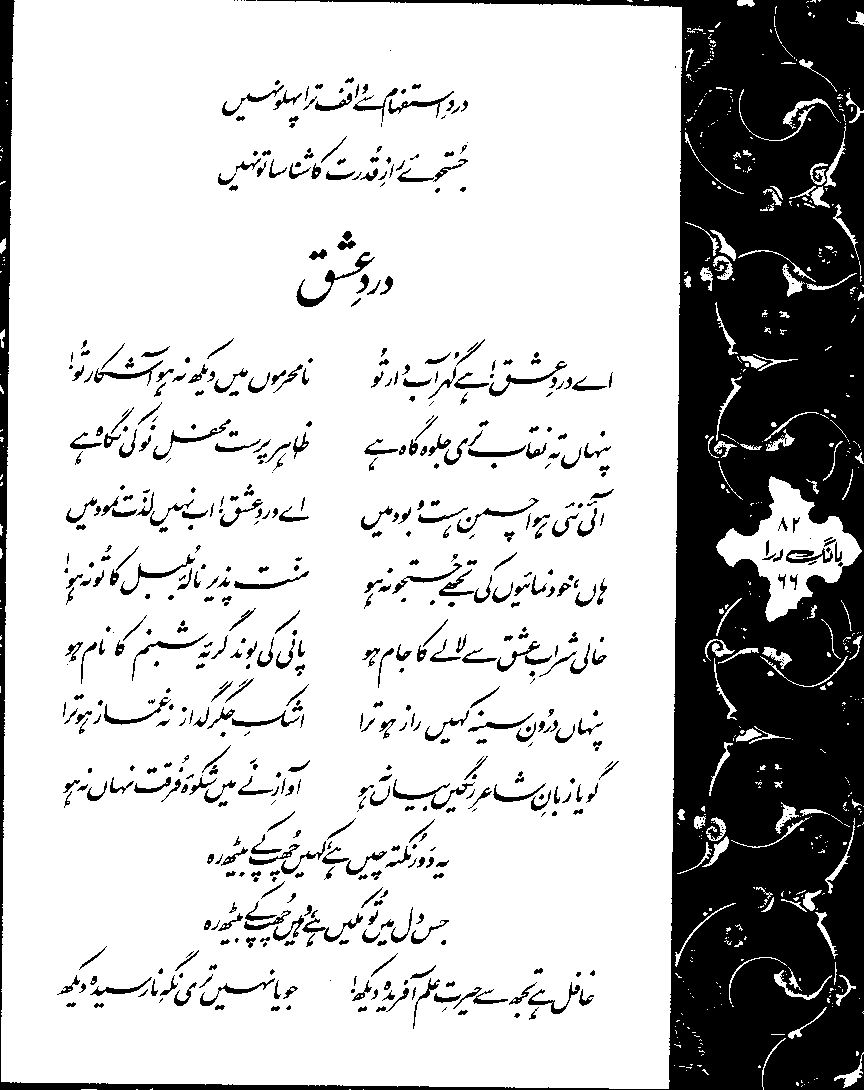 دردِ استفہام سے واقف ترا پہلو نہیں
جُستجوئے رازِ قُدرت کا شناسا تو نہیں
دردِ عشق
اے دردِ عشق! ہے گُہرِ آب دار تُو نامحرموں میں دیکھ نہ ہو آشکار تُو!
پنہاں تہِ نقاب تری جلوہ گاہ ہے ظاہر پرست محفلِ نَو کی نگاہ ہے
آئی نئی ہوا چمنِ ہست و بود میں اے دردِ عشق! اب نہیں لذّت نمود میں
ہاں، خود نمائیوں کی تجھے جُستجو نہ ہو منّت پذیر نالۂ بُلبل کا تُو نہ ہو!
خالی شرابِ عشق سے لالے کا جام ہو پانی کی بوند گریۂ شبنم کا نام ہو
پنہاں درُونِ سینہ کہیں راز ہو ترا اشکِ جگر گداز نہ غمّاز ہو ترا
گویا زبانِ شاعرِ رنگیں بیاں نہ ہو آوازِ نَے میں شکوۂ فُرقت نہاں نہ ہو
یہ دَور نکتہ چیں ہے، کہیں چُھپ کے بیٹھ رہ
جس دل میں تُو مکیں ہے، وہیں چُھپ کے بیٹھ رہ
غافل ہے تجھ سے حیرتِ علم آفریدہ دیکھ! جویا نہیں تری نگہِ نارسیدہ دیکھ
۸۲
بانگِ درا
۶۶